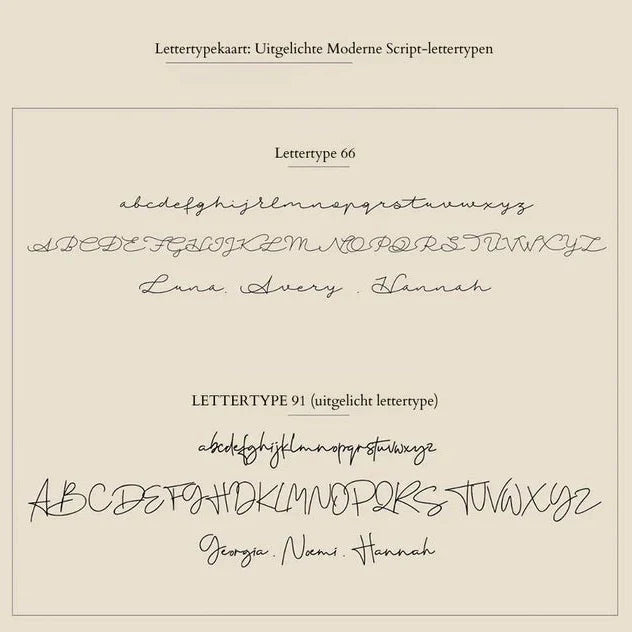 Lettertypekaart: Uitgelichte Moderne Script-lettertypen
Lettertype 66
abcdefghijklmnopqrstuvwxyz
ABCDEFGHIJKLMNOPQRSTUVWXYZ
Luna. Avery . Hannah
LETTERTYPE 91 (uitgelicht lettertype)
abcdefghijklmnopqrstuvwxyz
ABCDEFGHIJKLMNOPQRSTUVWXYZ
Georgia . Noemi . Hannah